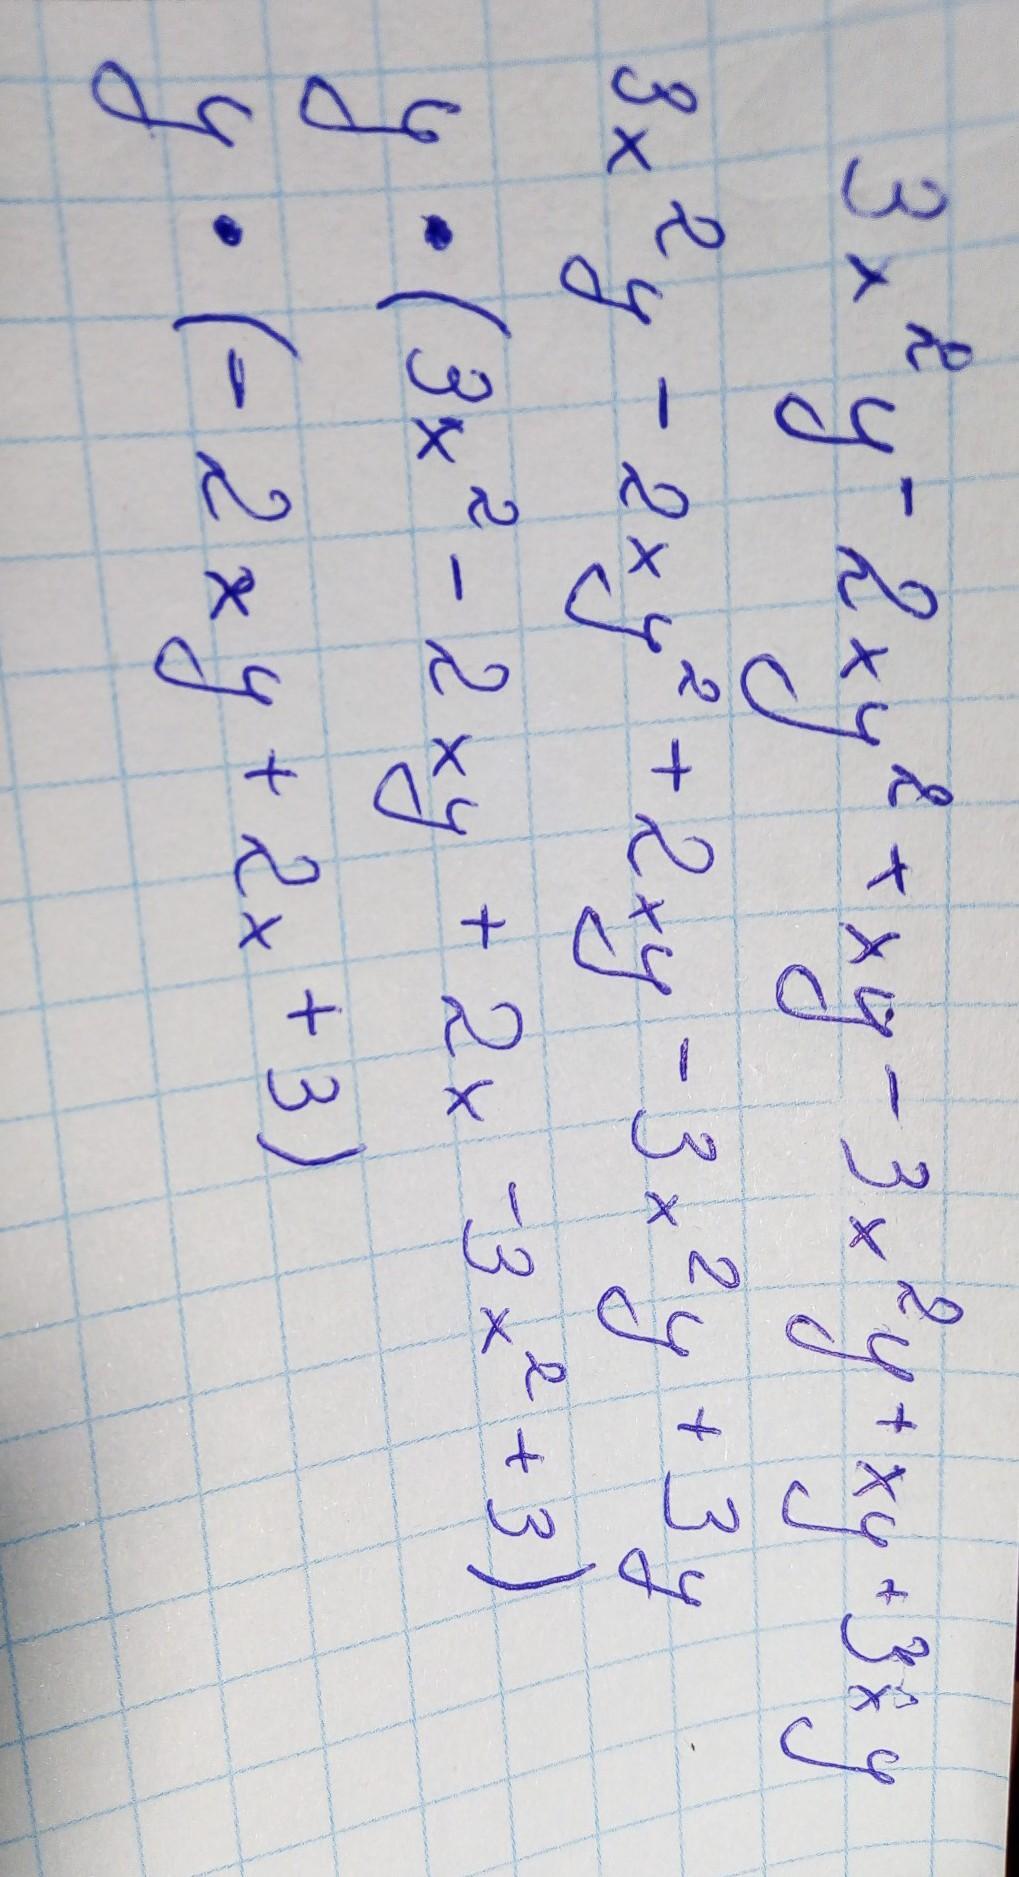 3x²y - 2xy² + xy - 3x²y + xy + 3xy
3x²y - 2xy² + 2xy - 3x²y + 3y
y · (3x² - 2xy + 2x - 3x² + 3)
y · (- 2xy + 2x + 3)